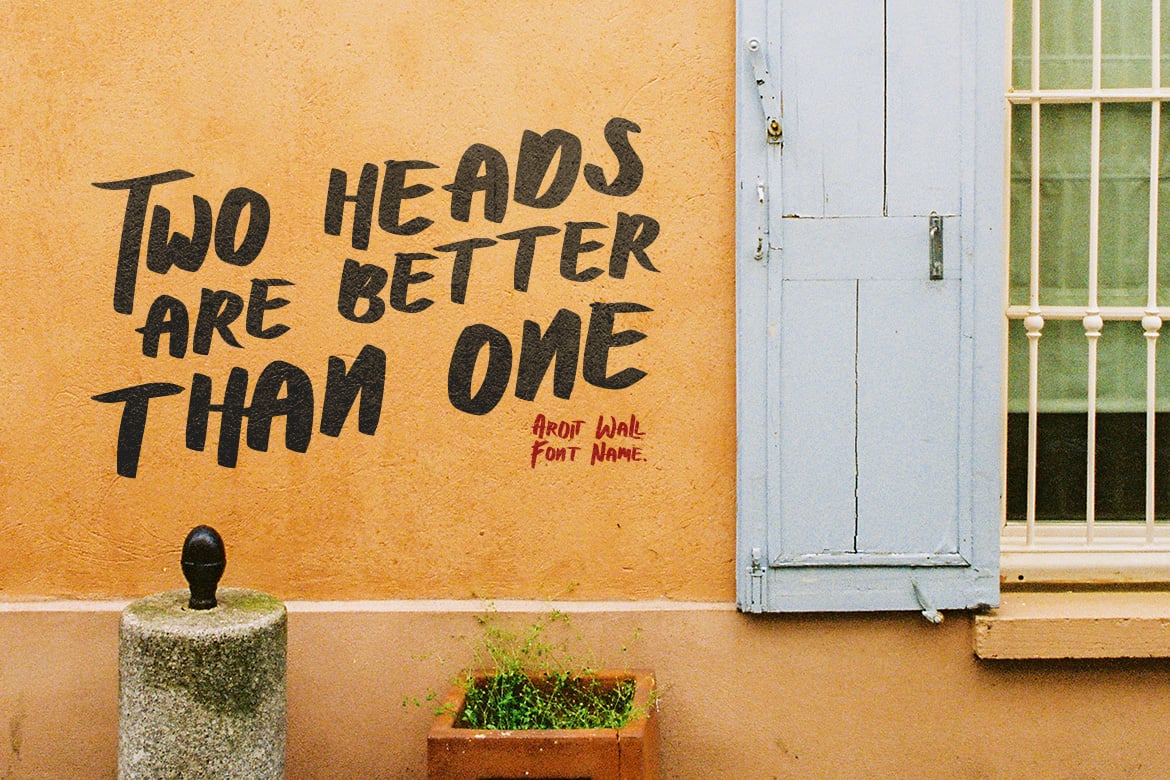 Two HEADS
ARE BETTER
THAN ONE
AROIT WALL
FONT NAME.